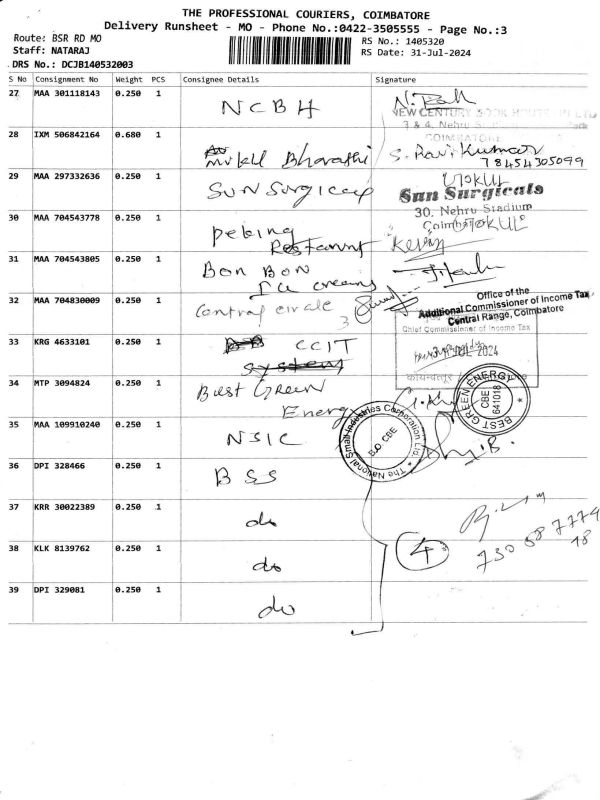 THE PROFESSIONAL COURIERS, COIMBATORE
Delivery Runsheet - MO - Phone No.:0422-3505555 - Page No.:3
Route: BSR RD MO
RS No.: 1405320
Staff: NATARAJ
RS Date: 31-Jul-2024
DRS No.: DCJB140532003
S No Consignment No Weight PCS Consignee Details Signature
27 MAA 301118143 0.250 1 NCBH
NEW CENTURY BOOK HOUSE (P) LTD
3 & 4, Nehru Stadium
COIMBATORE
28 IXM 506842164 0.680 1 Bharathi S. Ravi Kumar
78454305099
29 MAA 297332636 0.250 1 SUN Surgical GOKUL
Sun Surgicals
30, Nehru Stadium
Coimbatore
GOKUL
30 MAA 704543778 0.250 1 peking
Restarunt
31 MAA 704543805 0.250 1 Bon BON
Ice creams
32 MAA 704830009 0.250 1 Central circle 3
Office of the
Additional Commissioner of Income Tax
Central Range, Coimbatore
Chief Commissioner of Income Tax
33 KRG 4633101 0.250 1 CCIT
system
2024
कोयम्बत्तूर
34 MTP 3094824 0.250 1 Best Green
Energy
BEST GREEN ENERGY
CBE
641018
35 MAA 109910240 0.250 1 NSIC
The National Small Industries Corporation Ltd.
B.O CBE
36 DPI 328466 0.250 1 BSS
37 KRR 30022389 0.250 1 do
38 KLK 8139762 0.250 1 do
4
730 687774
18
39 DPI 329081 0.250 1 do